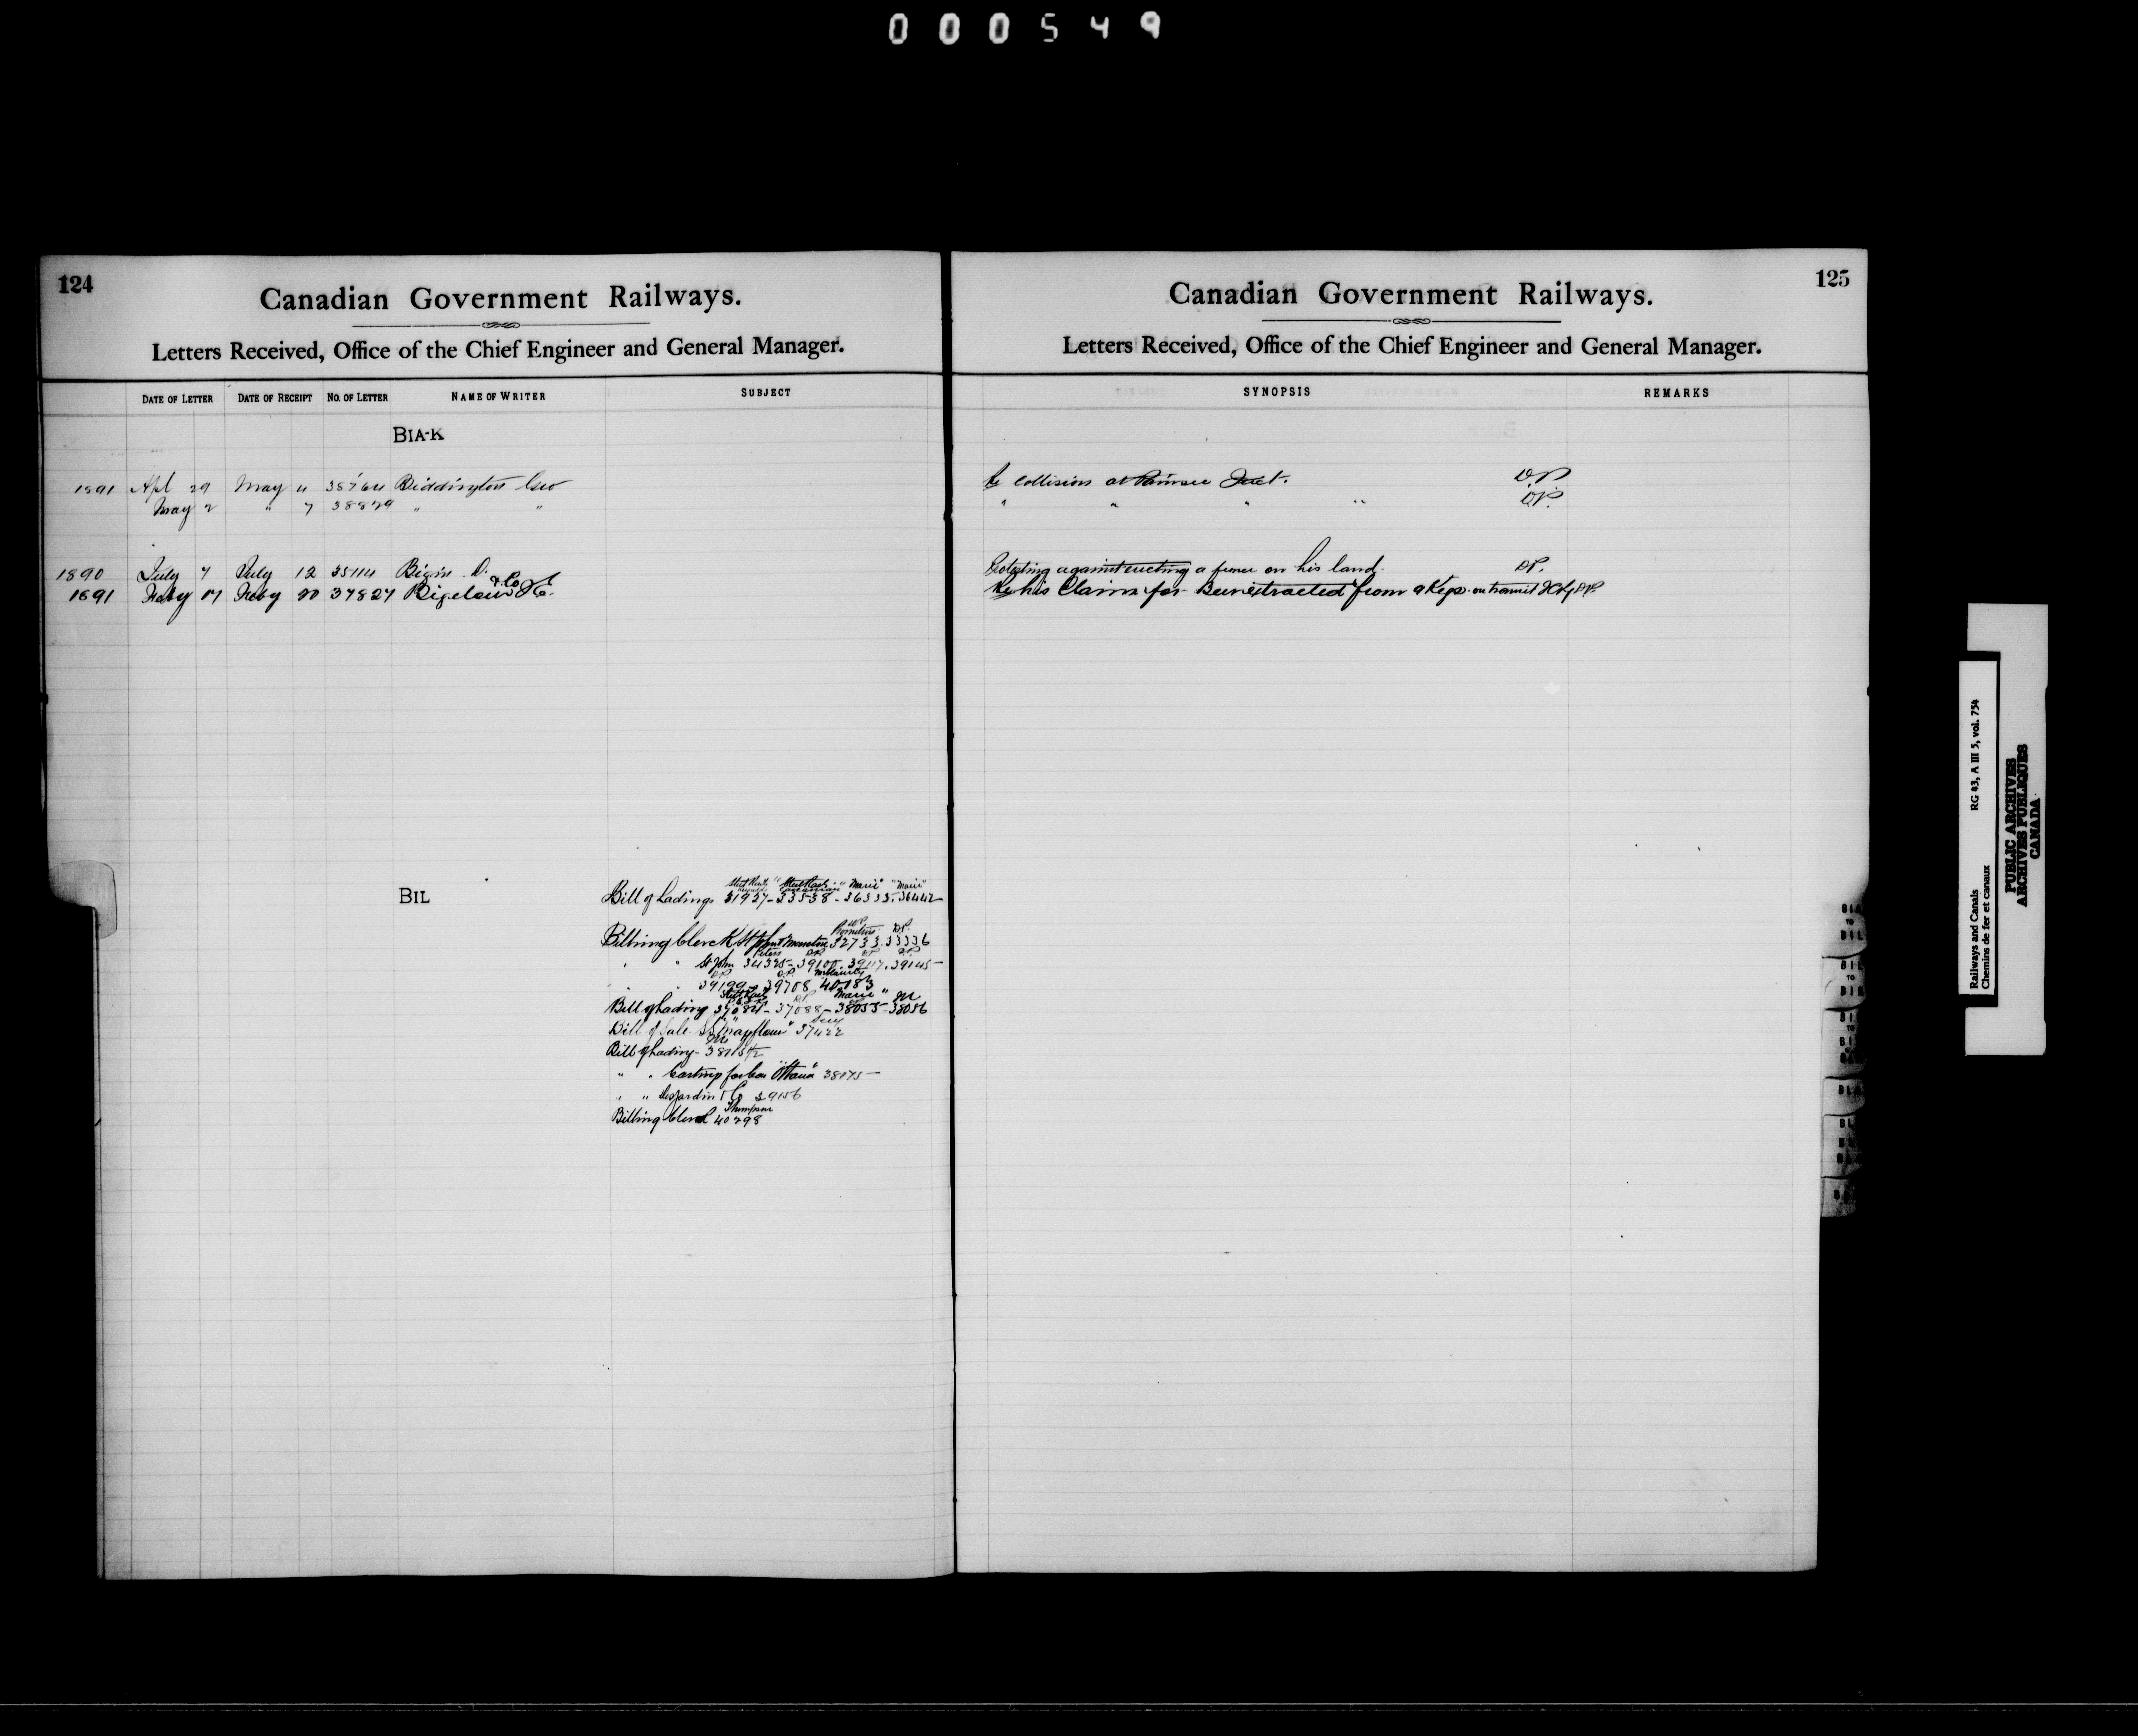 000549
124
Canadian Government Railways.
Letters Received, Office of the Chief Engineer and General Manager.
DATE OF LETTER DATE OF RECEIPT No. OF LETTER NAME OF WRITER SUBJECT
BIA-K
1891 Apl 29 May 4 38764 Biddington Geo
May 2 " 7 38879 " "
1890 July 7 July 12 35114 Bigin D.
1891 Feby 17 Feby 20 37827 Bigelow & Co
BIL
Bill of Ladings 31937 - 33538 - 36333. 36442
Billing Clerk Moncton 32733. 33336
" " St John 34325 - 39100. 39117. 39145
" " 39199 39708 40183
Bill of Lading 37084 - 37088 - 38055 - 38056
Bill of Sale S.S. "Mayflower" 37422
Bill of Lading - 38115½
" " Castings for Car "Ottawa" 38175
" " Desjardin & Co 39156
Thompson
Billing Clerk 40298
125
Canadian Government Railways.
Letters Received, Office of the Chief Engineer and General Manager.
SYNOPSIS REMARKS
Re Collision at Junct. D.P.
" " " " D.P.
Protesting against erecting a fence on his land. D.P.
Re his Claim for Beer extracted from a Keg in transit D.P.
Railways and Canals RG 43, A III 5, vol. 754
Chemins de fer et canaux
PUBLIC ARCHIVES
ARCHIVES PUBLIQUES
CANADA